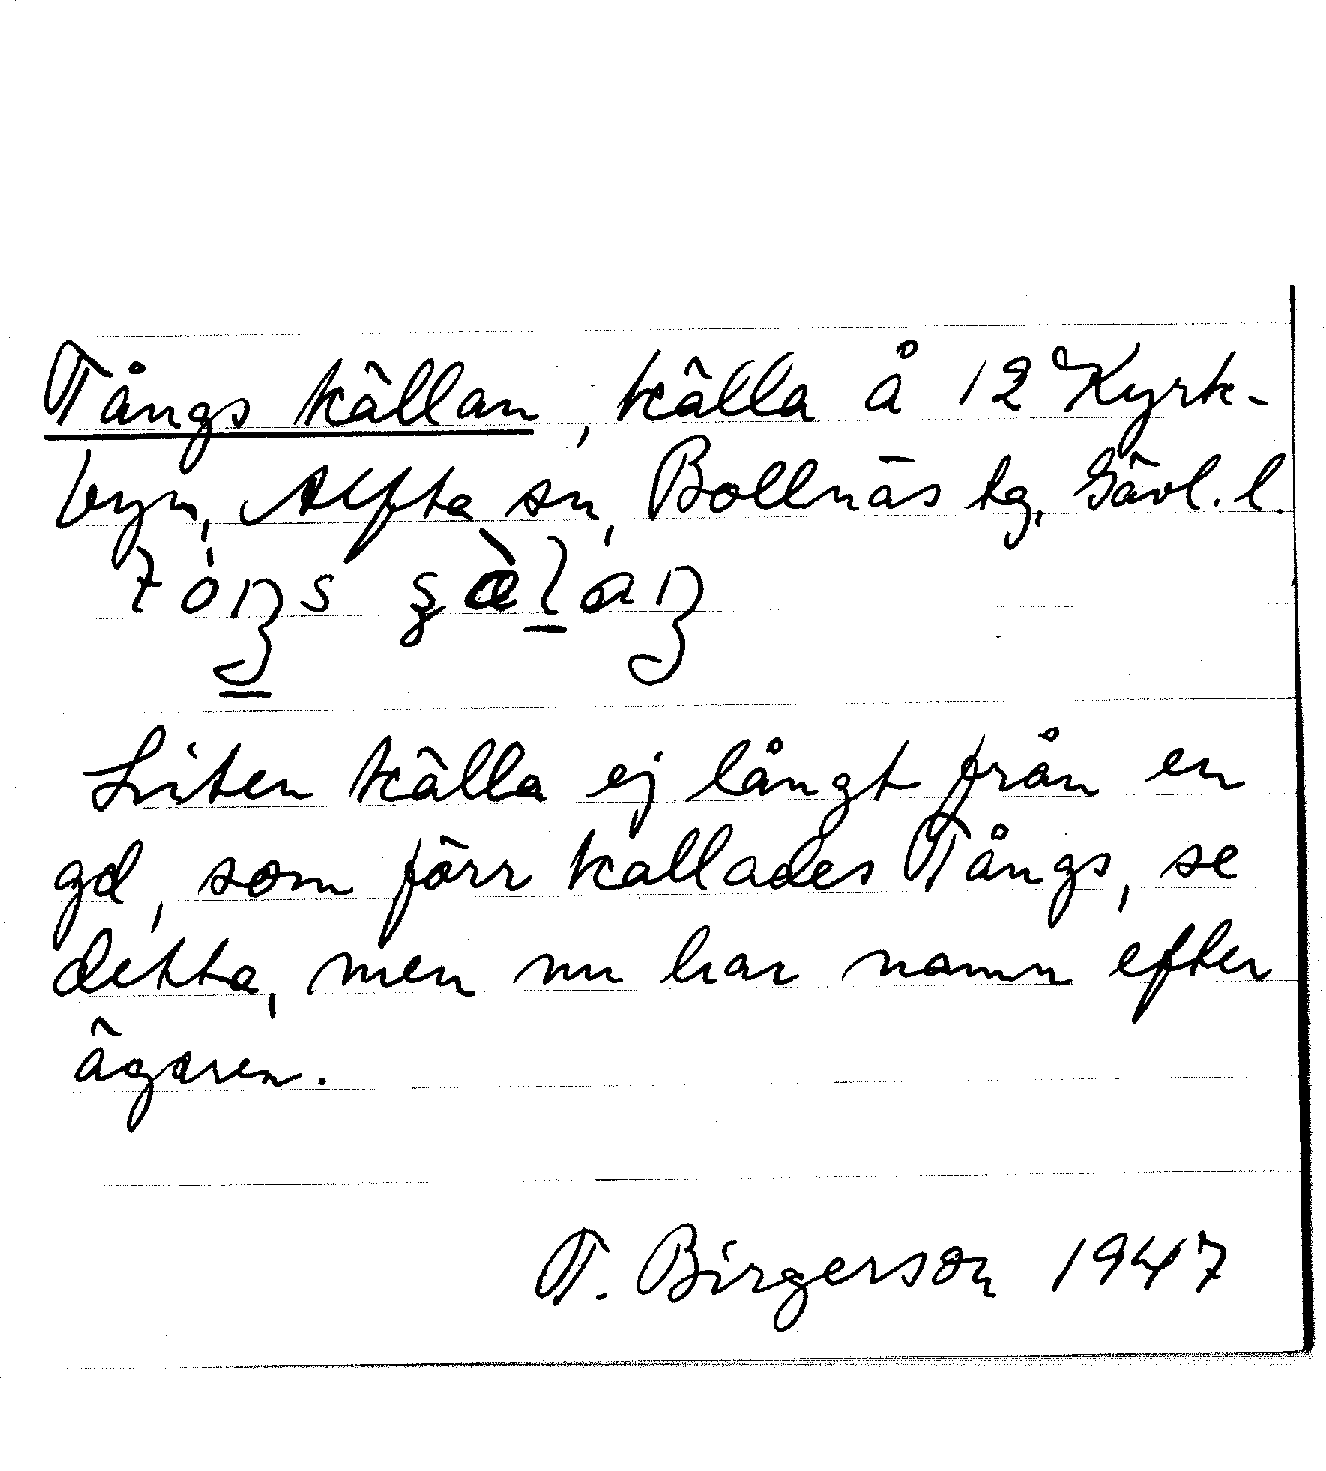 Tångs källan, källa å 12 Kyrk-
byn, Alfta sn, Bollnäs tg, Gävl. l.
Liten källa ej långt från en
gd, som förr kallades Tångs, se
detta, men nu har namn efter
ägaren.
T. Birgerson 1947